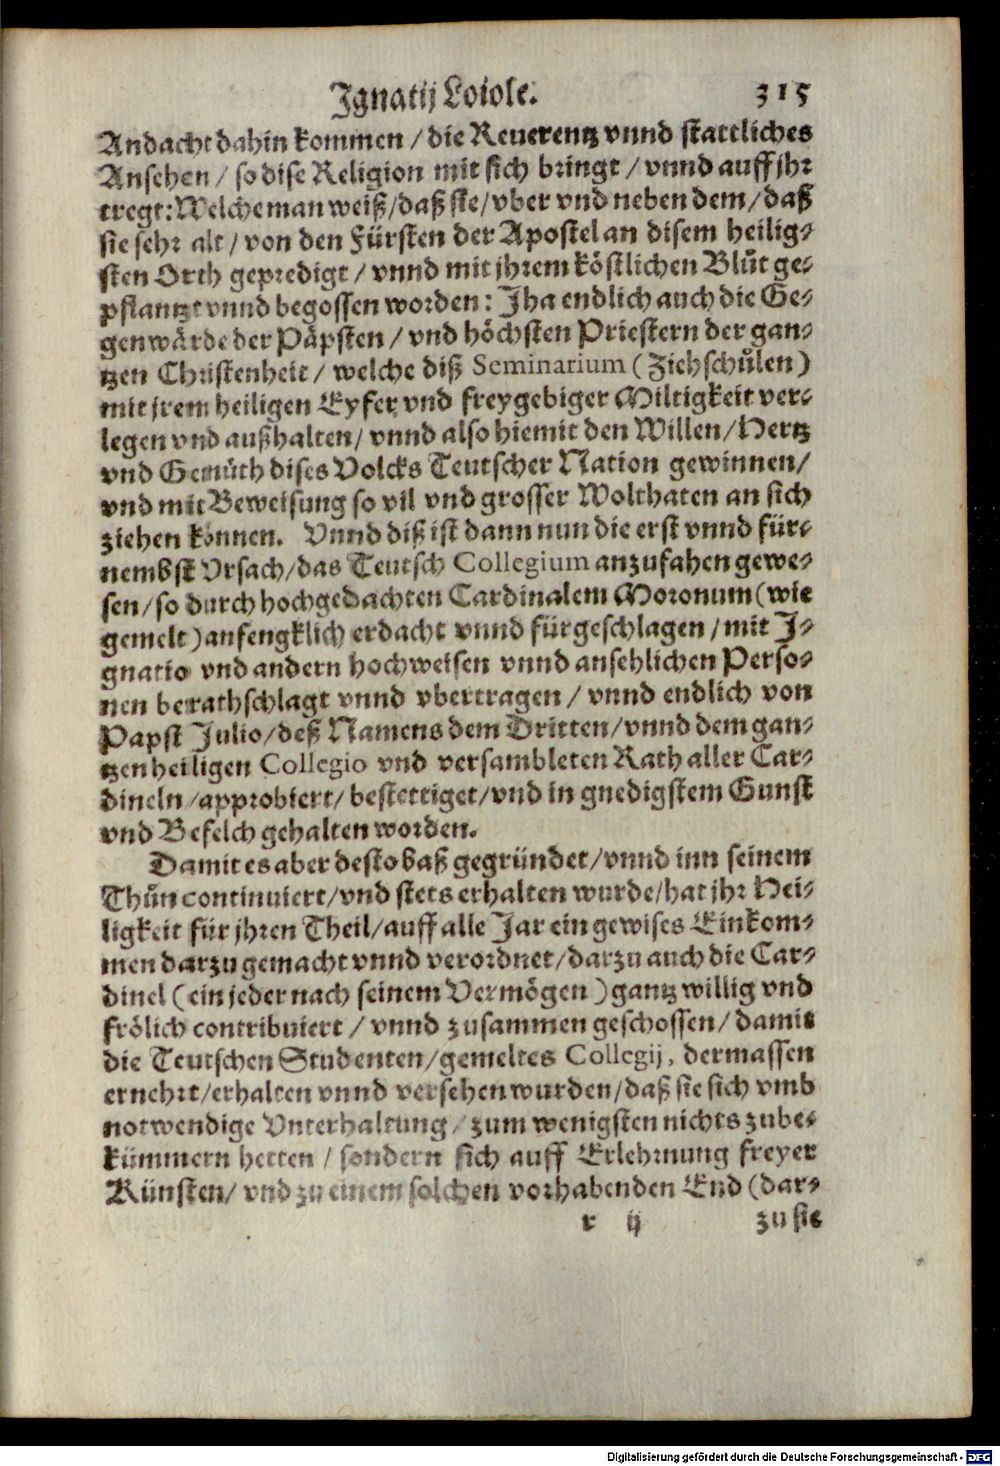 Ignatij Loiole. 315
Andacht dahin kommen / die Reuerentz vnnd stattliches
Ansehen / so dise Religion mit sich bringt / vnnd auff jhr
tregt: Welche man weiß / daß sie / vber vnd neben dem / daß
sie sehr alt / von den Fürsten der Apostel an disem heilig-
sten Orth gepredigt / vnnd mit jhrem köstlichen Blůt ge-
pflantzt vnnd begossen worden: Jha endlich auch die Ge-
genwärde der Päpsten / vnd höchsten Priestern der gan-
tzen Christenheit / welche diß Seminarium (Ziehschůlen)
mit jrem heiligen Eyfer vnd freygebiger Miltigkeit ver-
legen vnd außhalten / vnnd also hiemit den Willen / Hertz
vnd Gemüth dises Volcks Teutscher Nation gewinnen /
vnd mit Beweisung so vil vnd grosser Wolthaten an sich
ziehen können. Vnnd diß ist dann nun die erst vnnd für-
nembst Vrsach / das Teutsch Collegium anzufahen gewe-
sen / so durch hochgedachten Cardinalem Moronum (wie
gemelt) anfengklich erdacht vnnd fürgeschlagen / mit J-
gnatio vnd andern hochweisen vnnd ansehlichen Perso-
nen berathschlagt vnnd vbertragen / vnnd endlich von
Papst Julio / deß Namens dem Dritten / vnnd dem gan-
tzen heiligen Collegio vnd versambleten Rath aller Car-
dineln / approbiert / bestettiget / vnd in gnedigstem Gunst
vnd Befelch gehalten worden.
Damit es aber desto baß gegründet / vnnd inn seinem
Thůn continuiert / vnd stets erhalten wurde / hat jhr Hei-
ligkeit für jhren Theil / auff alle Jar ein gewises Einkom-
men darzu gemacht vnnd verordnet / darzu auch die Car-
dinel (ein jeder nach seinem Vermögen) gantz willig vnd
frölich contribuiert / vnnd zusammen geschossen / damit
die Teutschen Studenten / gemeltes Collegij, dermassen
ernehrt / erhalten vnnd versehen wurden / daß sie sich vmb
notwendige Vnterhaltung / zum wenigsten nichts zube-
kümmern hetten / sondern sich auff Erlehrnung freyer
Künsten / vnd zu einem solchen vorhabenden End (dar-
r ij zu sie
Digitalisierung gefördert durch die Deutsche Forschungsgemeinschaft - DFG